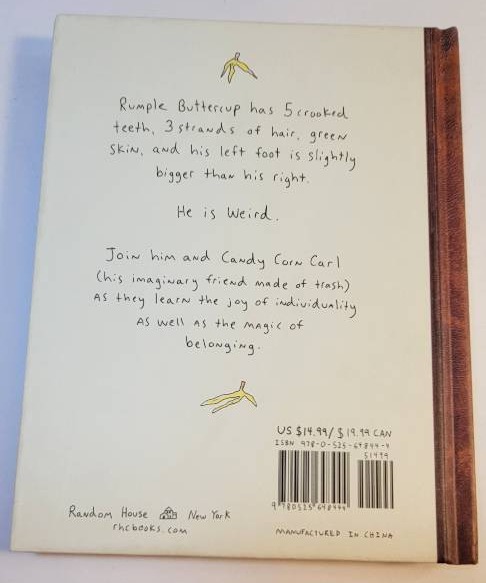 Rumple Buttercup has 5 crooked
teeth, 3 strands of hair, green
skin, and his left foot is slightly
bigger than his right.
He is weird.
Join him and Candy Corn Carl
(his imaginary friend made of trash)
as they learn the joy of individuality
as well as the magic of
belonging.
US $14.99/$19.99 CAN
ISBN 978-0-525-64844-4
51499
9 780525 648444
Random House New York
rhcbooks.com
MANUFACTURED IN CHINA